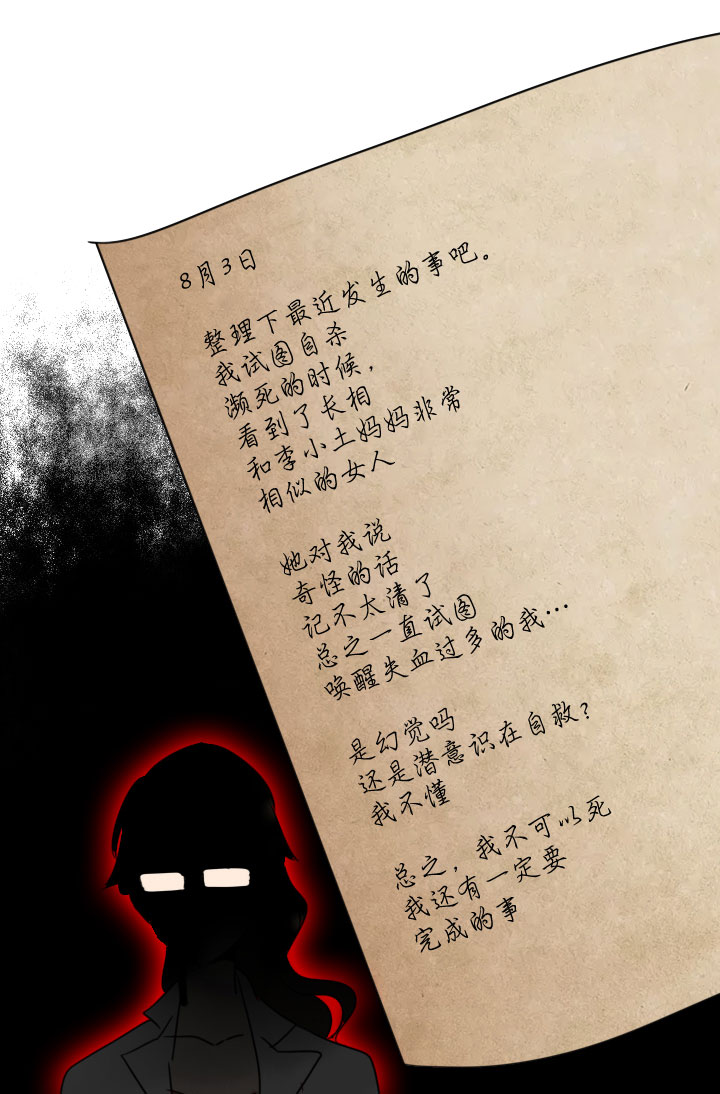 8月3日
整理下最近发生的事吧。
我试图自杀
濒死的时候,
看到了长相
和李小土妈妈非常
相似的女人
她对我说
奇怪的话
记不太清了
总之一直试图
唤醒失血过多的我…
是幻觉吗
还是潜意识在自救?
我不懂
总之,我不可以死
我还有一定要
完成的事